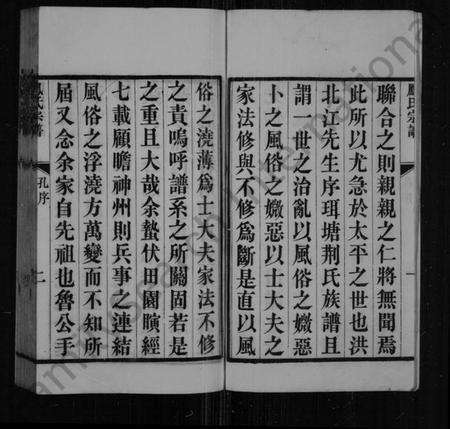 盧氏宗譜
聯合之則親親之仁將無聞焉
此所以尤急於太平之世也洪
北江先生序珥塘荆氏族譜且
謂一世之治亂以風俗之媺惡
卜之風俗之媺惡以士大夫之
家法修與不修為斷是直以風
一
俗之澆薄為士大夫家法不修
之責嗚呼譜系之所關固若是
之重且大哉余蟄伏田園曠經
七載顧瞻神州則兵事之連結
風俗之浮澆方萬變而不知所
屆又念余家自先祖也魯公手
氏宗譜
孔序
二